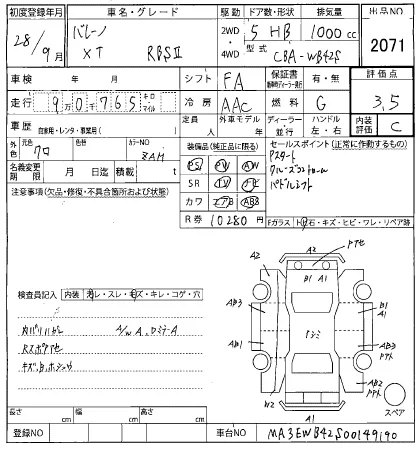 初度登録年月
車名・グレード
駆動
ドア数・形状
排気量
出品NO
28/9月
バレーノ
XT
RBSⅡ
2WD
4WD
5 HB
1000cc
型式
CBA-WB42S
2071
車検
年 月
シフト FA
保証書
有・無
評価点
3.5
走行 9万0千765 キロ マイル
冷房 AAC
燃料 G
車歴
自家用・レンタ・事業用( )
定員 人
外車モデル 年
ディーラー 並行
ハンドル 左・右
内装評価 C
外色
元色 クロ
色替
カラーNO ZAM
装備品(純正品に限る)
PS PW AW
SR TV ナビ
カワ エアB ABS
セールスポイント(正常に作動するもの)
Pスタート
クルーズコントロール
パドルシフト
名義変更期限
月 日
積載 t
R券 10280円
注意事項(欠品・修復・不具合箇所および状態)
Fガラス トビ石・キズ・ヒビ・ワレ・リペア跡
検査員記入
内装
ヨゴレ・スレ・キズ・キレ・コゲ・穴
A2
A2
B1 A1
AB3
B1
A1
AB1
AB3
AB2
W2
A1
スペア
長さ cm
幅 cm
高さ cm
登録NO
車台NO MA3EWB42S00149190